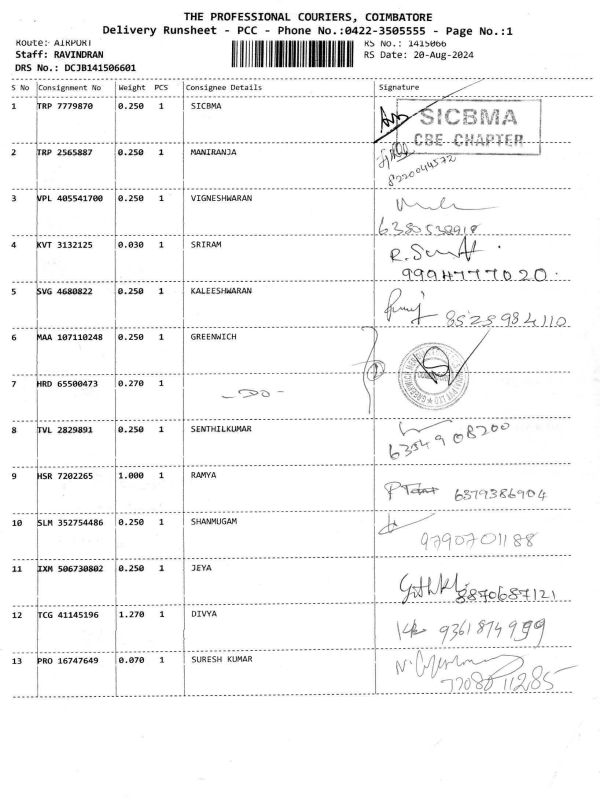 THE PROFESSIONAL COURIERS, COIMBATORE
Delivery Runsheet - PCC - Phone No.:0422-3505555 - Page No.:1
Route: AIRPORT RS No.: 1415066
Staff: RAVINDRAN RS Date: 20-Aug-2024
DRS No.: DCJB141506601
S No Consignment No Weight PCS Consignee Details Signature
1 TRP 7779870 0.250 1 SICBMA
SICBMA
CBE CHAPTER
2 TRP 2565887 0.250 1 MANIRANJA
8220044572
3 VPL 405541700 0.250 1 VIGNESHWARAN
6380538918
4 KVT 3132125 0.030 1 SRIRAM
9994777020.
5 SVG 4680822 0.250 1 KALEESHWARAN
8525984110
6 MAA 107110248 0.250 1 GREENWICH
7 HRD 65500473 0.270 1 -DO-
8 TVL 2829891 0.250 1 SENTHILKUMAR
6354908200
9 HSR 7202265 1.000 1 RAMYA
6379386904
10 SLM 352754486 0.250 1 SHANMUGAM
9790701188
11 IXM 506730802 0.250 1 JEYA
8870687121
12 TCG 41145196 1.270 1 DIVYA
9361874999
13 PRO 16747649 0.070 1 SURESH KUMAR
7708811285